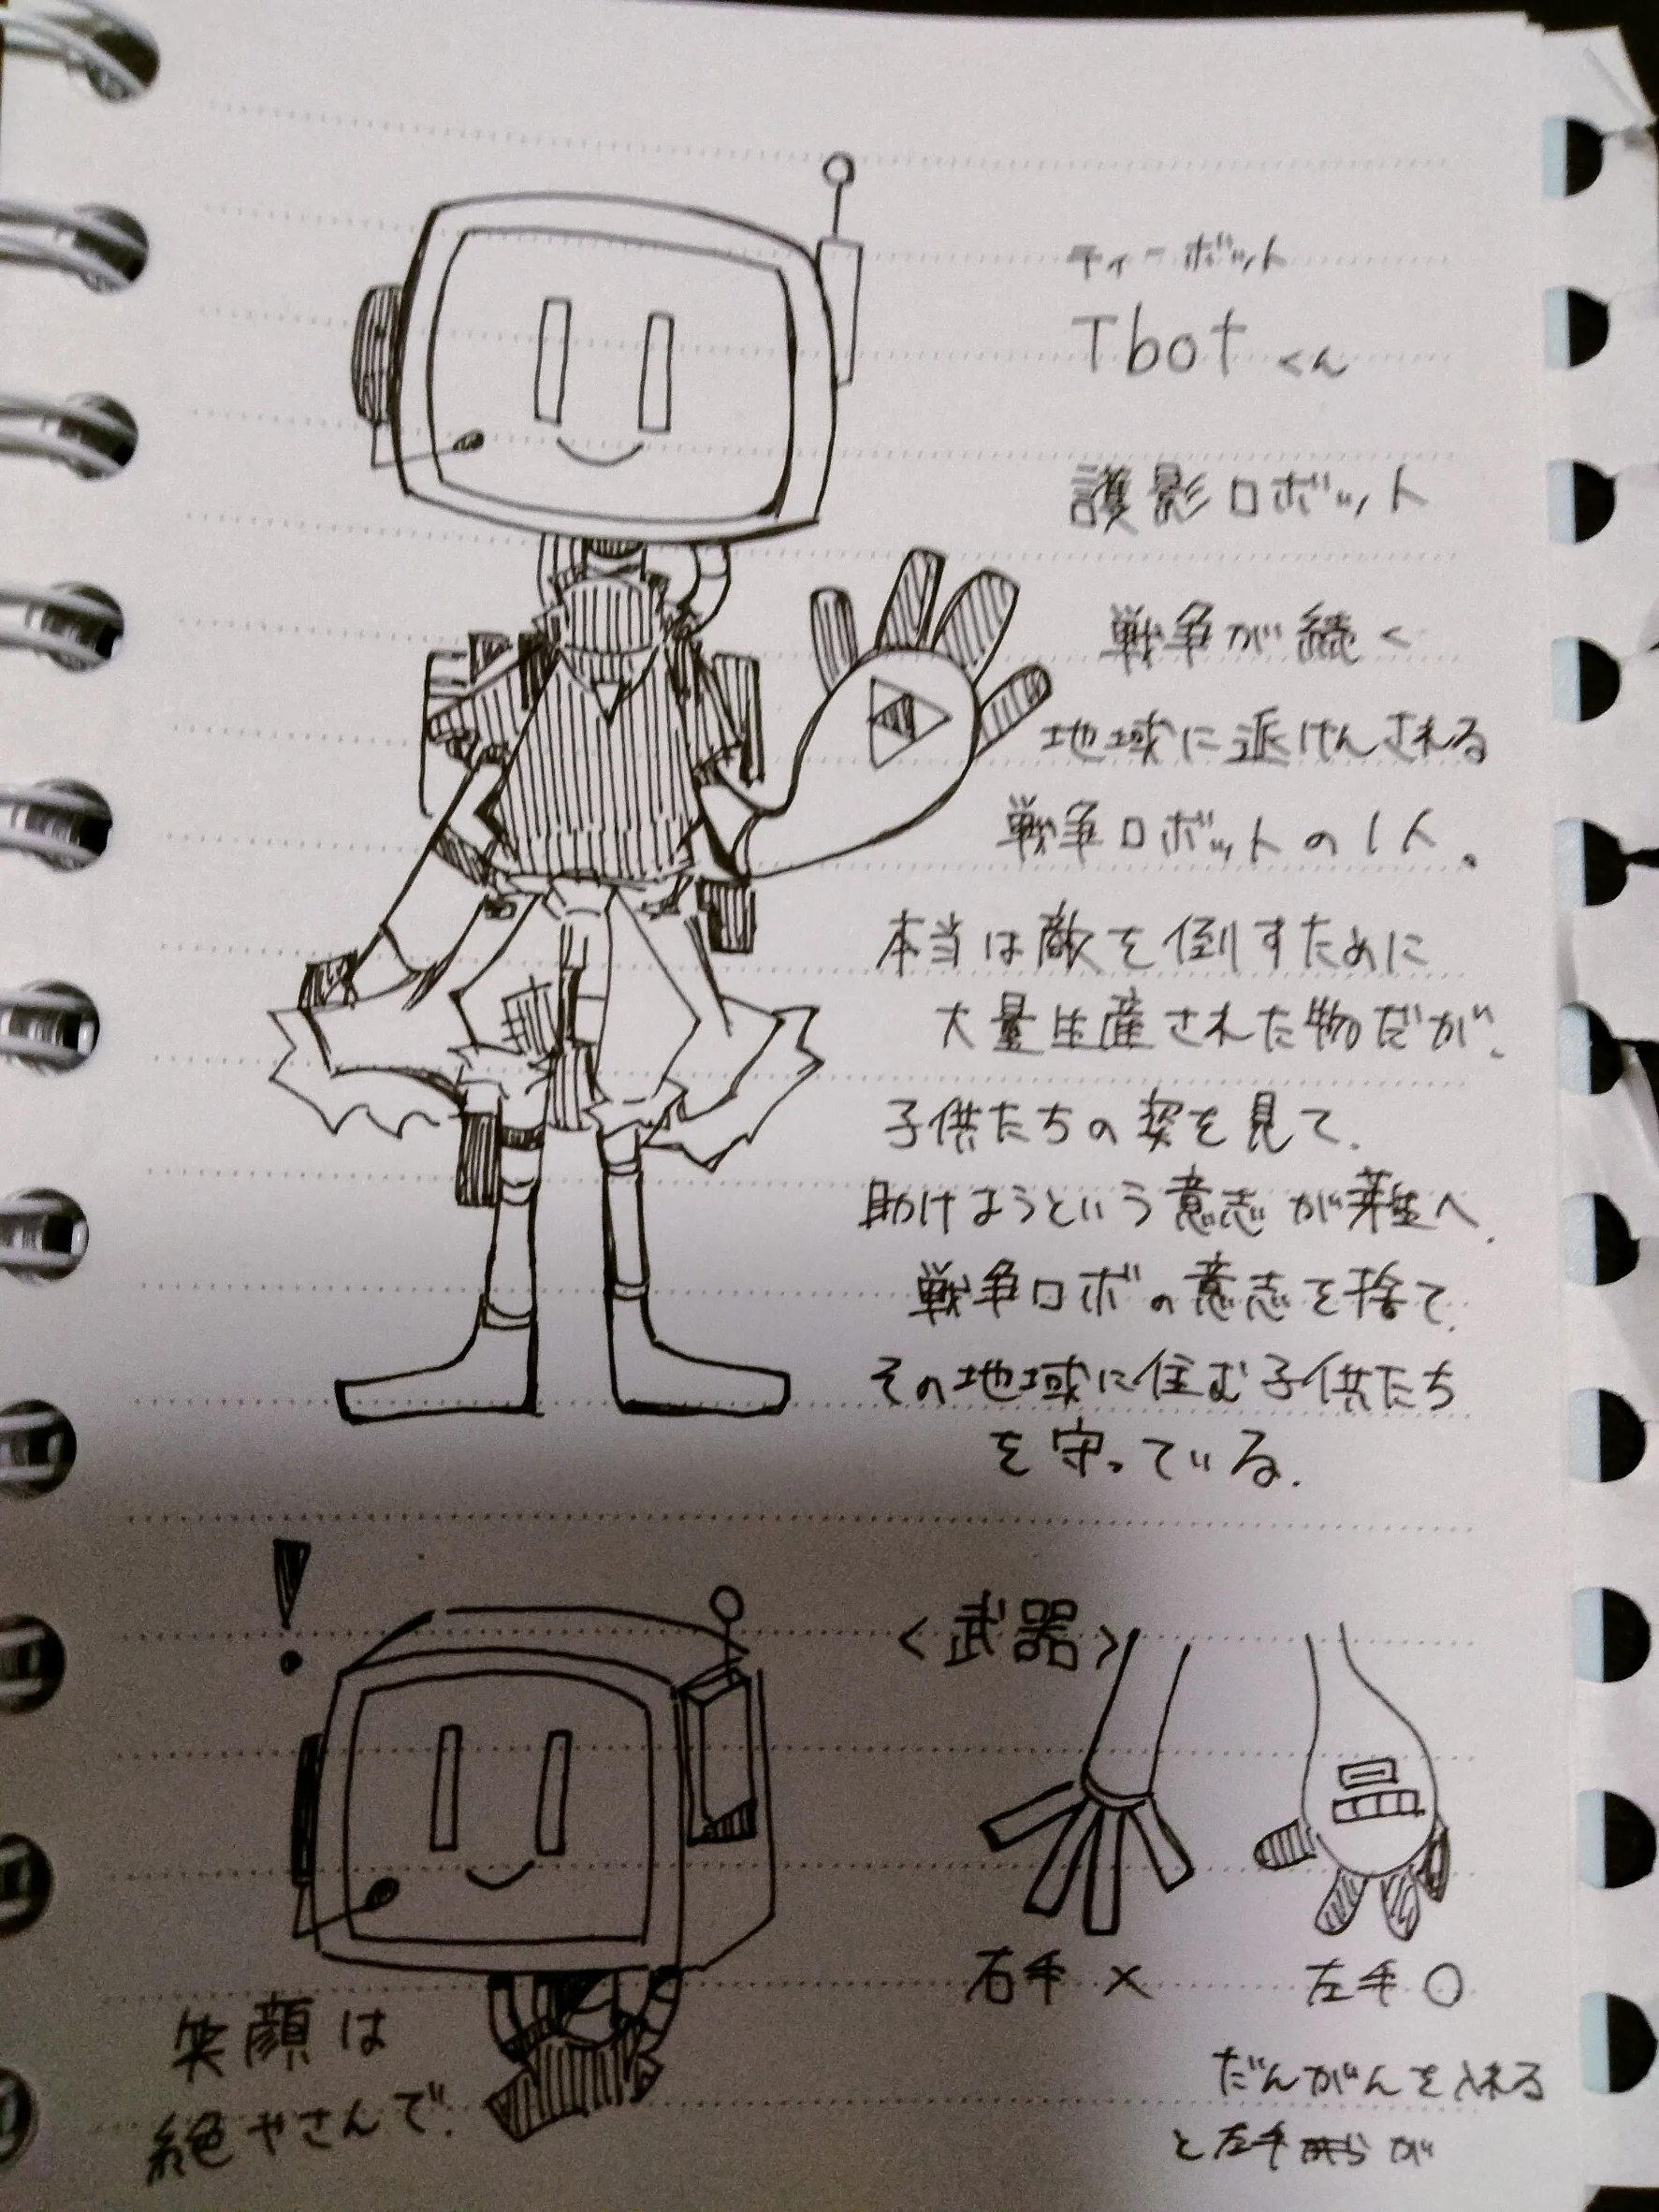 ティーボット
Tbotくん
護影ロボット
戦争が続く
地域に派けんされる
戦争ロボットの1人。
本当は敵を倒すために
大量生産された物だが、
子供たちの姿を見て、
助けようという意志が芽生へ、
戦争ロボの意志を捨て、
その地域に住む子供たち
を守っている。
!
<武器>
右手 × 左手 ○
笑顔は
絶やさんで。
だんがんを入れる
と左手が